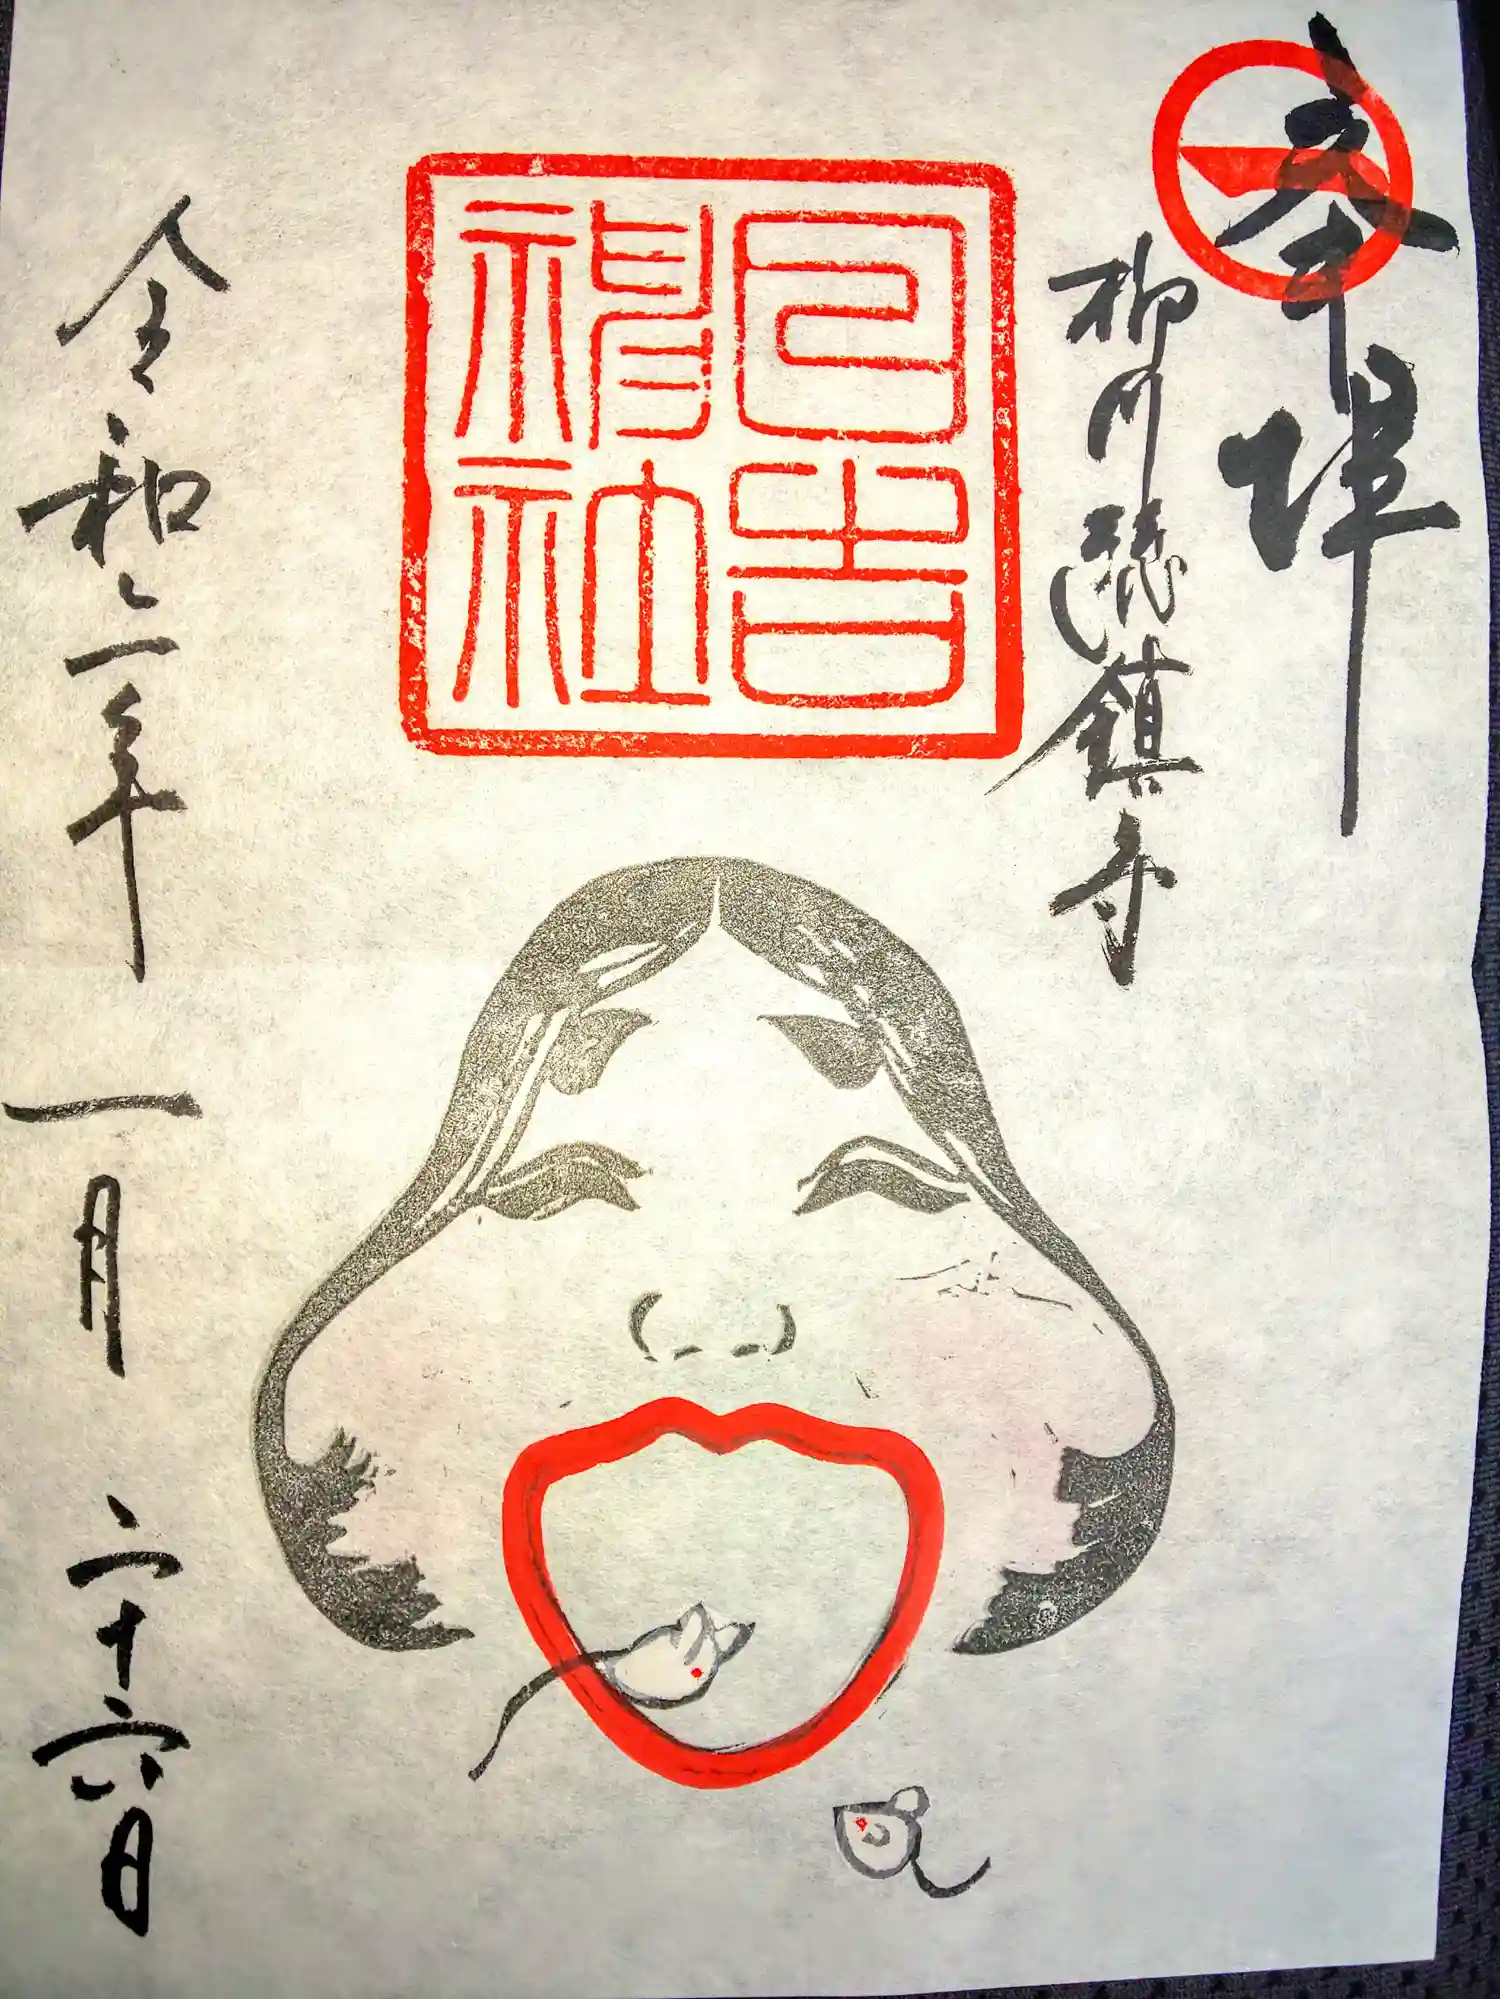 奉拝
柳川総鎮守
日吉
神社
令和二年一月二十六日